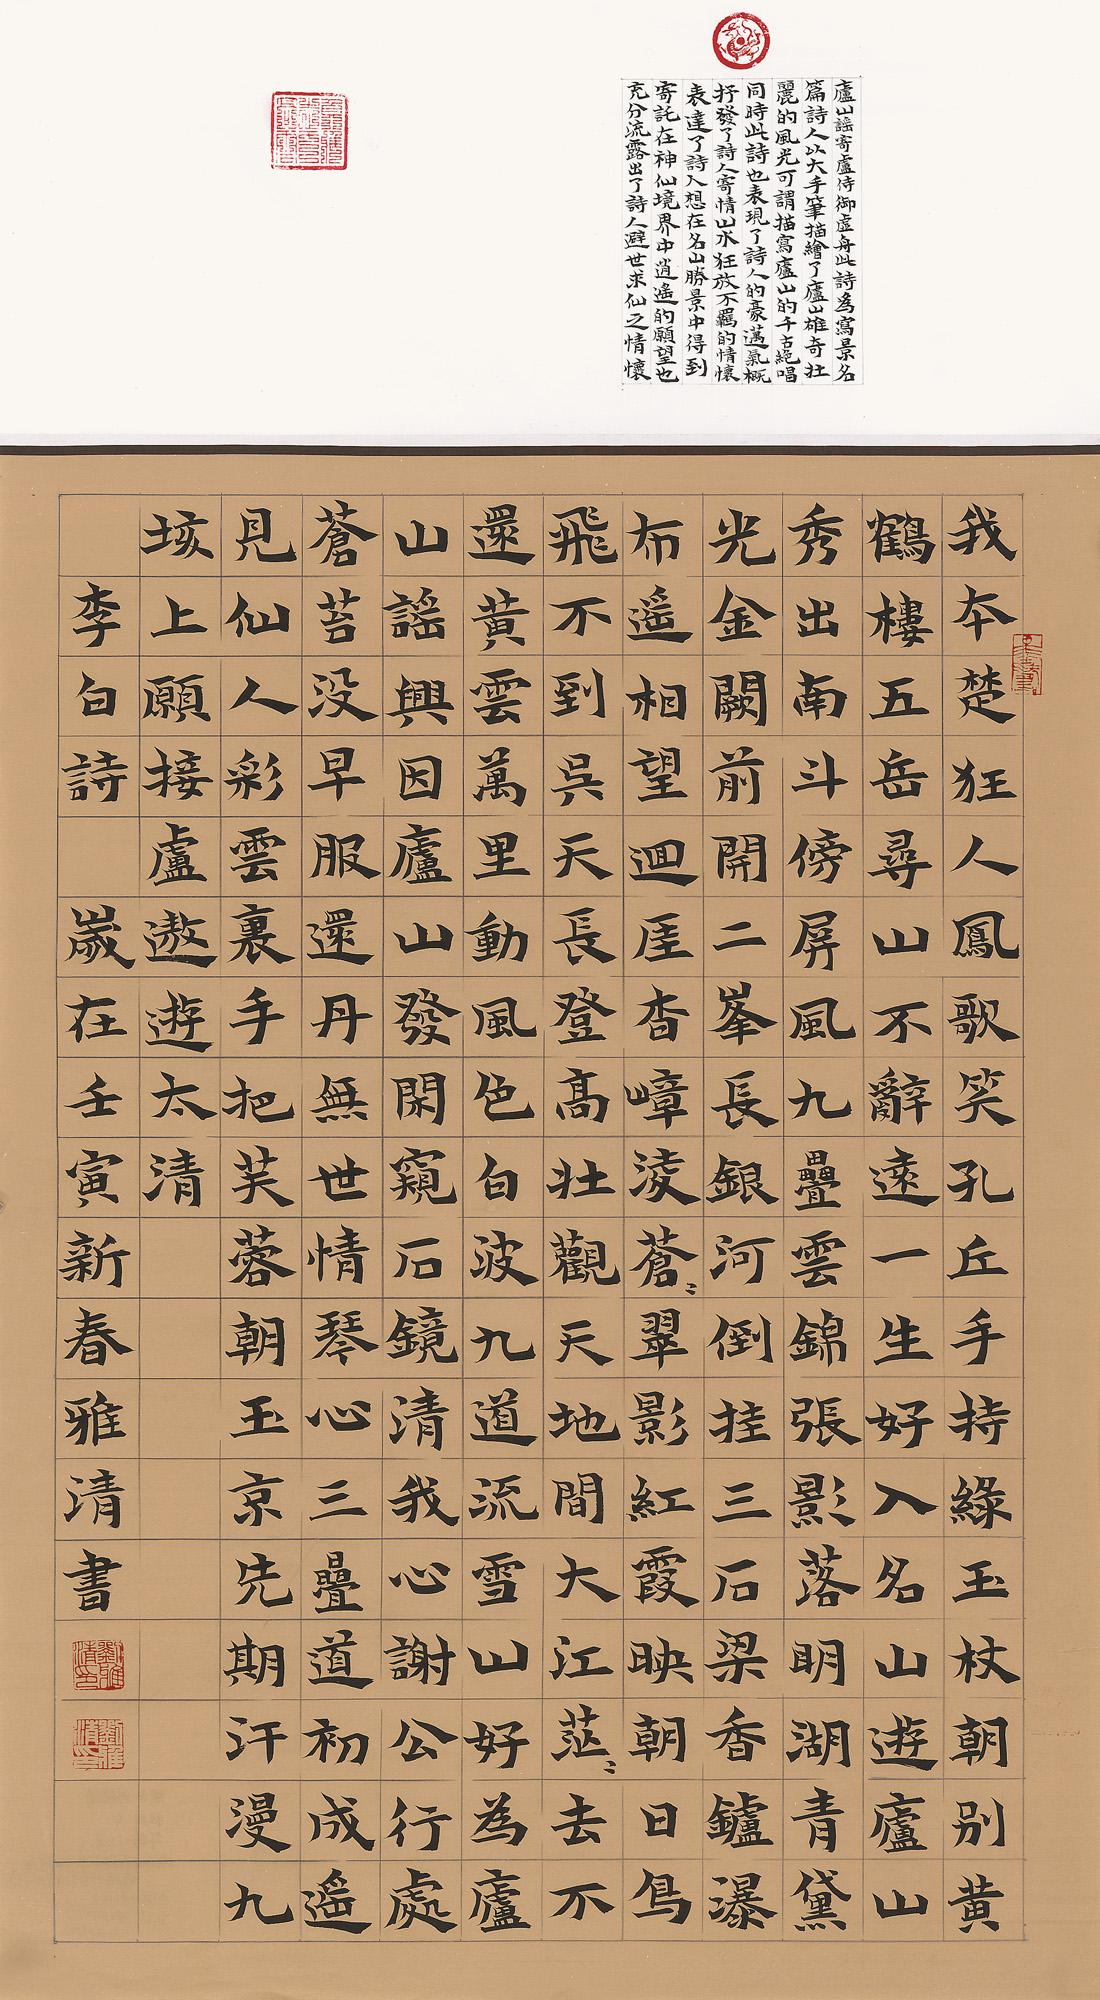 廬山謠寄盧侍御虛舟此詩為寫景名
篇詩人以大手筆描繪了廬山雄奇壯
麗的風光可謂描寫廬山的千古絕唱
同時此詩也表現了詩人的豪邁氣概
抒發了詩人寄情山水狂放不羈的情懷
表達了詩人想在名山勝景中得到
寄託在神仙境界中逍遙的願望也
充分流露出了詩人避世求仙之情懷
我本楚狂人鳳歌笑孔丘手持綠玉杖朝別黃
鶴樓五岳尋山不辭遠一生好入名山遊廬山
秀出南斗傍屏風九疊雲錦張影落明湖青黛
光金闕前開二峯長銀河倒挂三石梁香鑪瀑
布遥相望迴崖沓嶂淩蒼〻翠影紅霞映朝日鳥
飛不到吳天長登高壯觀天地間大江茫〻去不
還黃雲萬里動風色白波九道流雪山好為廬
山謠興因廬山發閑窺石鏡清我心謝公行處
蒼苔没早服還丹無世情琴心三疊道初成遥
見仙人彩雲裏手把芙蓉朝玉京先期汗漫九
垓上願接盧遨遊太清
李白詩 歲在壬寅新春雅清書